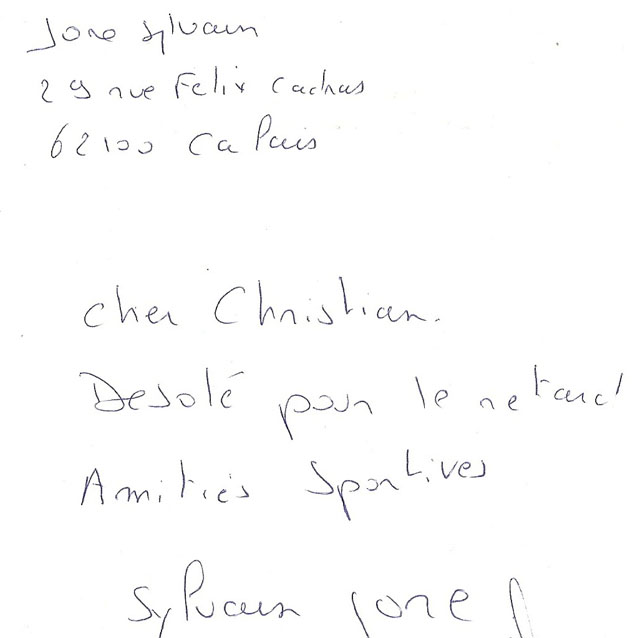 Jore Sylvain
29 rue Felix Cachas
62100 Calais
cher Christian.
Desolé pour le retard
Amitiés Sportives
Sylvain Jore